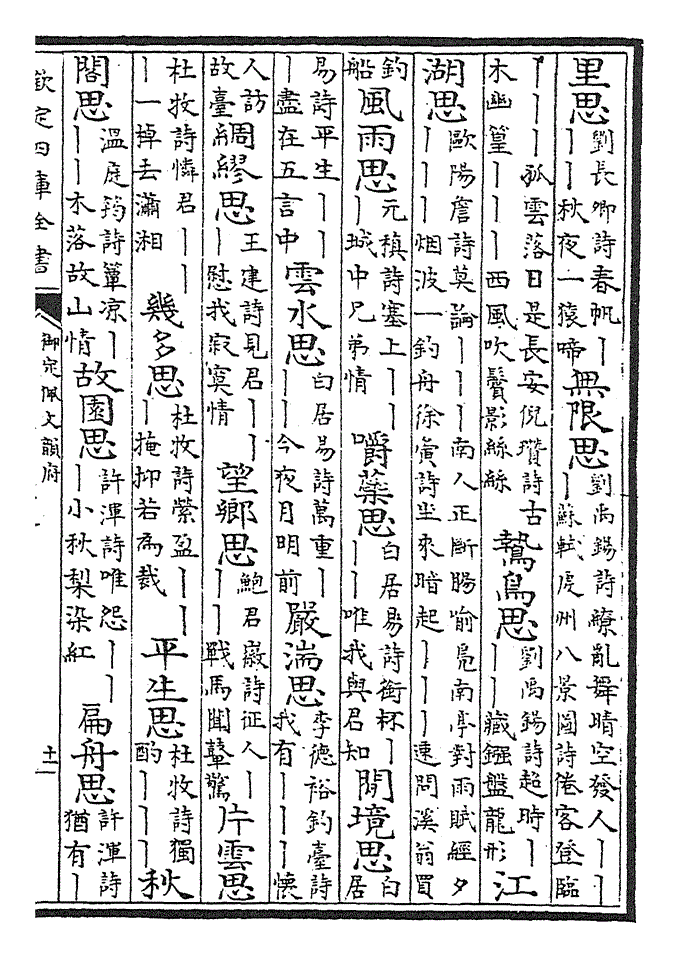 里思劉長卿詩春帆丨丨丨秋夜一猿啼無限思劉禹錫詩繚亂舞晴空發人丨丨丨蘇軾虔州八景圖詩倦客登臨
丨丨丨孤雲落日是長安倪瓚詩古木幽篁丨丨丨西風吹鬢影絲絲鷙鳥思劉禹錫詩趨時丨丨丨藏鏹盤龍形江
湖思歐陽詹詩莫論丨丨丨南人正斷腸喻鳧南亭對雨賦經夕丨丨丨烟波一釣舟徐夤詩坐來暗起丨丨丨速問溪翁買
釣船風雨思元稹詩塞上丨丨丨城中兄弟情嚼藥思白居易詩銜杯丨丨丨唯我與君知閒境思白居
易詩平生丨丨丨盡在五言中雲水思白居易詩萬重丨丨丨今夜月明前嚴湍思李德裕釣臺詩我有丨丨丨懷
人訪故臺綢繆思王建詩見君丨丨丨慰我寂寞情望鄉思鮑君徽詩征人丨丨丨戰馬聞鼙驚片雲思
杜牧詩憐君丨丨丨一棹去瀟湘幾多思杜牧詩縈盈丨丨丨掩抑若為裁平生思杜牧詩獨酌丨丨丨秋
閣思溫庭筠詩簟凉丨丨丨木落故山情故園思許渾詩唯怨丨丨丨小秋梨染紅扁舟思許渾詩猶有丨
欽定四庫全書
御定佩文韻府
十一